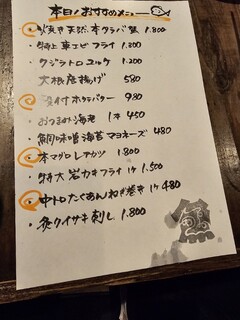 本日のおすすめメニュー
天然本タラバ蟹 1.800
特上車エビフライ 1.300
クジラトロユッケ 1.200
大根唐揚げ 580
殻付ホタテバター 980
おつまみ海老 1本 450
鯛味噌海苔マヨネーズ 480
本マグロレアカツ 1.800
特大岩カキフライ 1ケ 1.500
中トロたくあんねぎ巻き 1ケ 480
炙クイサキ刺し 1.800